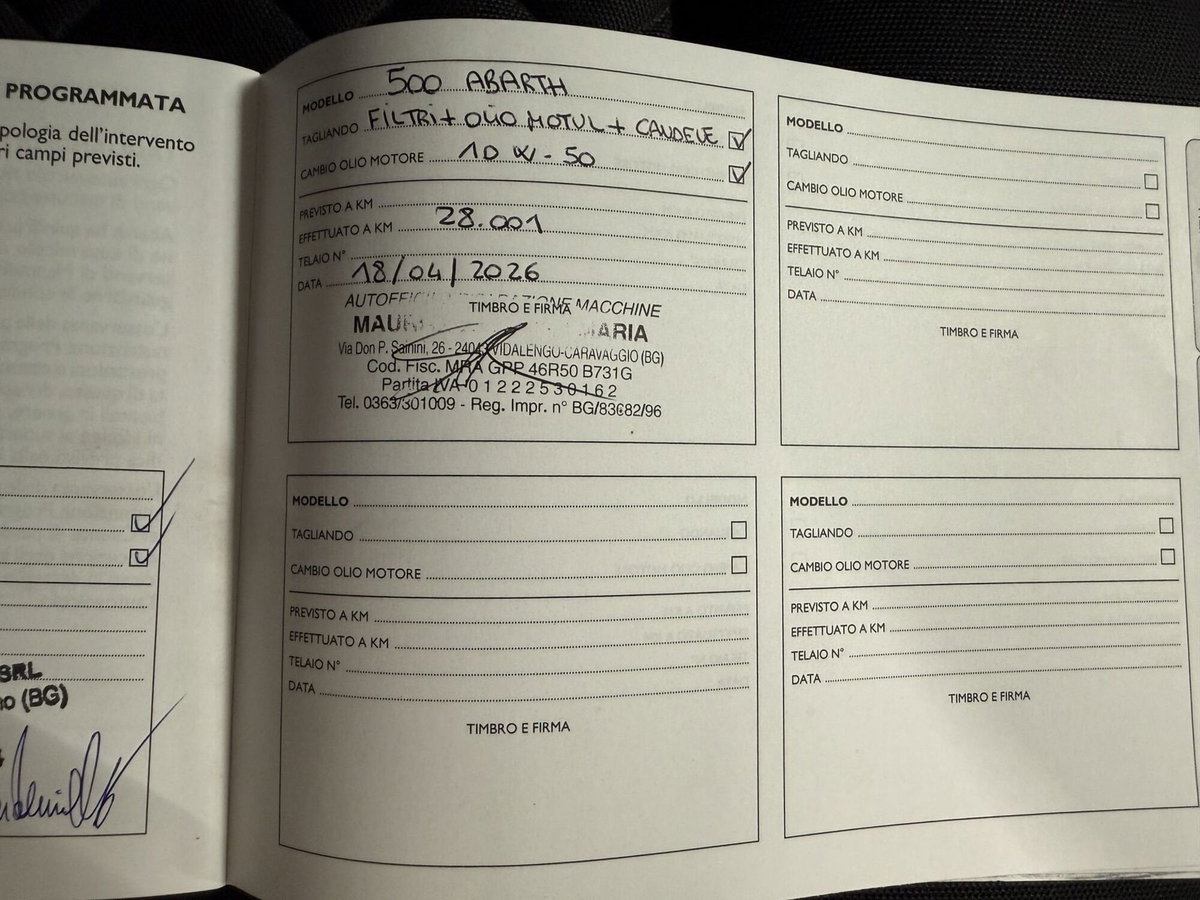 PROGRAMMATA
pologia dell'intervento
ri campi previsti.
SRL
no (BG)
MODELLO 500 ABARTH
TAGLIANDO FILTRI + OLIO MOTUL + CANDELE
CAMBIO OLIO MOTORE 10 W-50
PREVISTO A KM
EFFETTUATO A KM 28.001
TELAIO N°
DATA 18/04/2026
TIMBRO E FIRMA
MACCHINE
ARIA
Via Don P. Sainini, 26 - 24043 VIDALENGO-CARAVAGGIO (BG)
Cod. Fisc. MRA GPP 46R50 B731G
Partita IVA 0 1 2 2 2 5 3 0 1 6 2
Tel. 0363/301009 - Reg. Impr. n° BG/83682/96
MODELLO
TAGLIANDO
CAMBIO OLIO MOTORE
PREVISTO A KM
EFFETTUATO A KM
TELAIO N°
DATA
TIMBRO E FIRMA
MODELLO
TAGLIANDO
CAMBIO OLIO MOTORE
PREVISTO A KM
EFFETTUATO A KM
TELAIO N°
DATA
TIMBRO E FIRMA
MODELLO
TAGLIANDO
CAMBIO OLIO MOTORE
PREVISTO A KM
EFFETTUATO A KM
TELAIO N°
DATA
TIMBRO E FIRMA